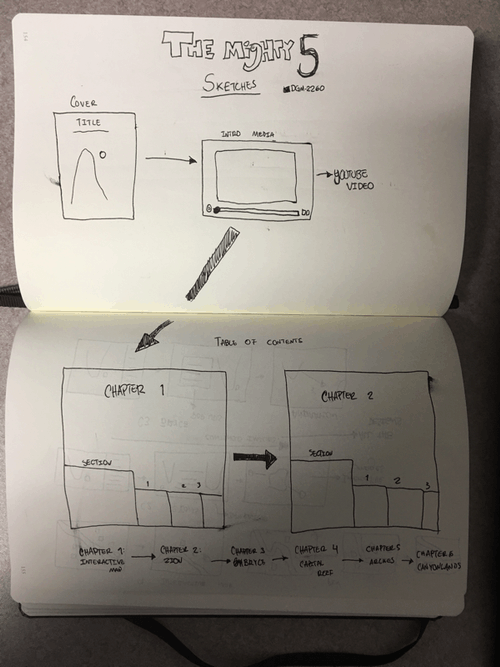 THE MIGHTY 5
SKETCHES
DGM-2260
COVER
TITLE
INTRO MEDIA
YOUTUBE
VIDEO
TABLE OF CONTENTS
CHAPTER 1
SECTION
1 2 3
CHAPTER 2
SECTION
1 2 3
CHAPTER 1:
INTERACTIVE
MAP
CHAPTER 2:
ZION
CHAPTER 3
BRYCE
CHAPTER 4
CAPITAL
REEF
CHAPTER 5
ARCHES
CHAPTER 6
CANYONLANDS